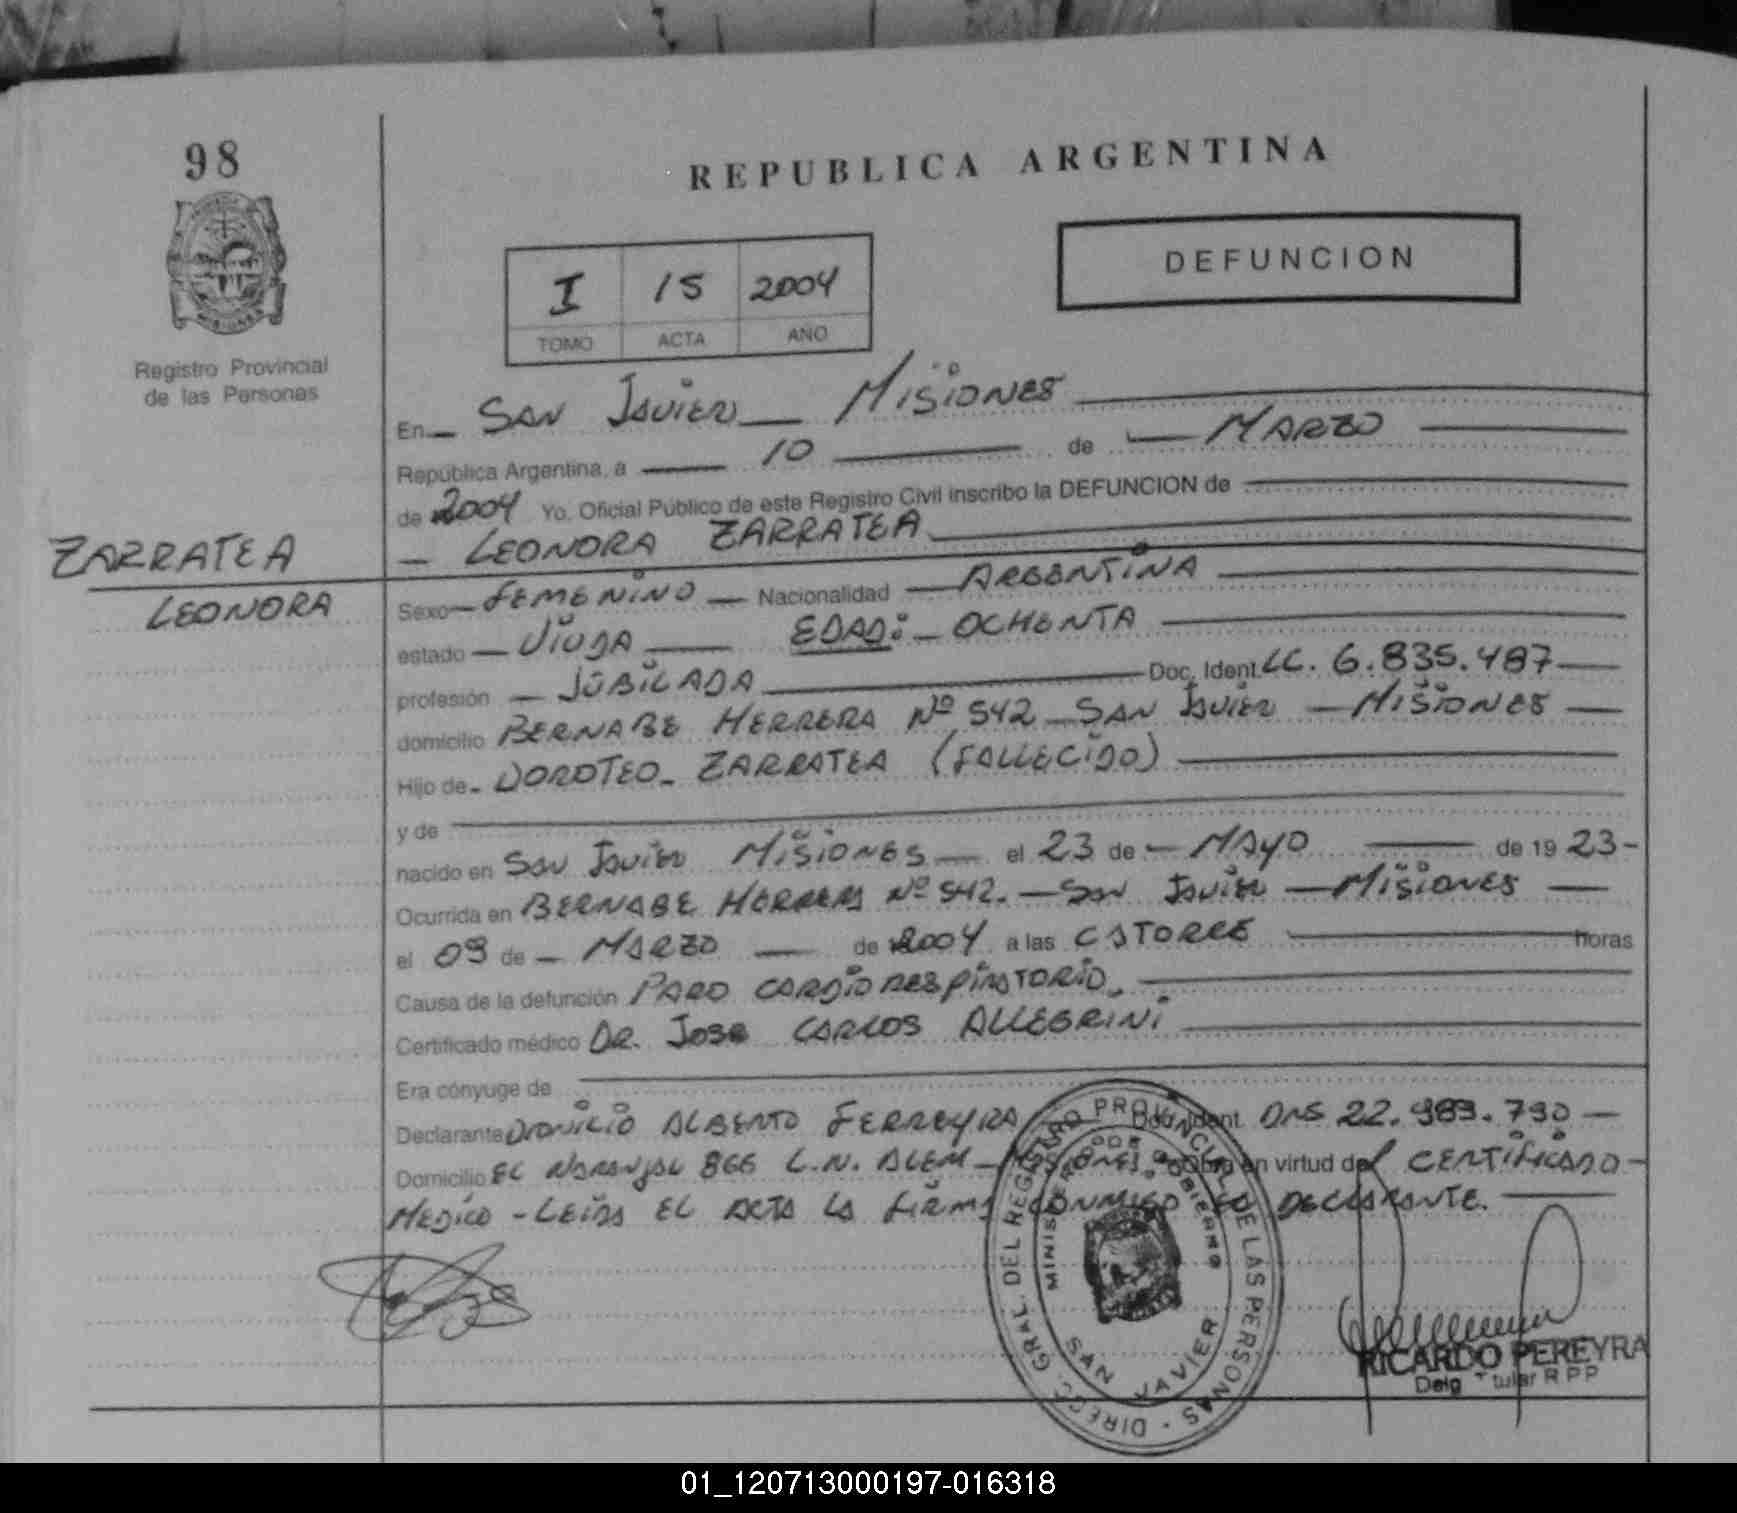 98
REPUBLICA ARGENTINA
DEFUNCION
I 15 2004
TOMO ACTA AÑO
MISIONES
Registro Provincial
de las Personas
En SAN JAVIER MISIONES
República Argentina, a 10 de MARZO
de 2004 Yo, Oficial Público de este Registro Civil inscribo la DEFUNCION de
LEONORA ZARRATEA
ZARRATEA
LEONORA
Sexo FEMENINO Nacionalidad ARGENTINA
estado VIUDA EDAD: OCHENTA
profesión JUBILADA Doc. Ident. LC. 6.835.487
domicilio BERNABE HERRERA Nº 542 SAN JAVIER MISIONES
Hijo de DOROTEO ZARRATEA (FALLECIDO)
y de
nacido en SAN JAVIER MISIONES el 23 de MAYO de 1923
Ocurrida en BERNABE HERRERA Nº 542. SAN JAVIER MISIONES
el 09 de MARZO de 2004 a las CATORCE horas
Causa de la defunción PARO CARDIO RESPIRATORIO
Certificado médico DR. JOSE CARLOS ALLEGRINI
Era cónyuge de
Declarante DIONICIO ALBERTO FERREYRA Doc. Ident. DNI 22.989.790
Domicilio EL NARANJAL 866 L.N. ALEM MISIONES Obra en virtud del CERTIFICADO
MEDICO - LEIDA EL ACTA LA FIRMA CONMIGO EL DECLARANTE.
DIREC. GRAL. DEL REGISTRO PROVINCIAL DE LAS PERSONAS
MINISTERIO DE GOBIERNO
SAN JAVIER
RICARDO PEREYRA
Deleg. Titular R P P
01_120713000197-016318